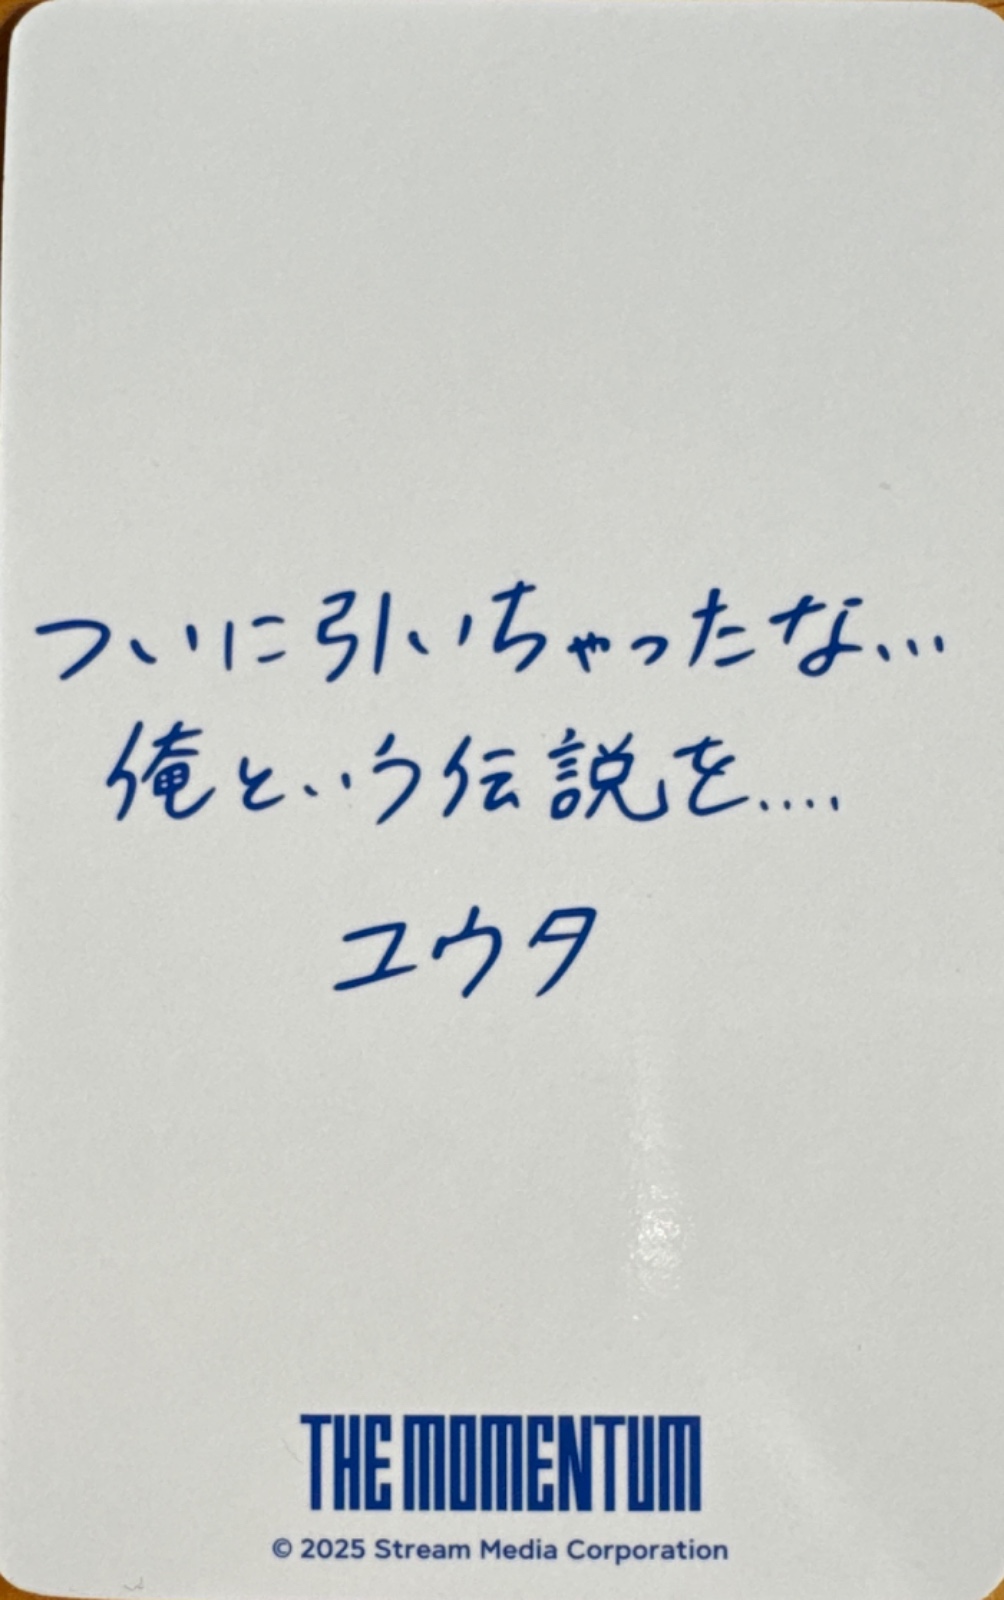 ついに引いちゃったな...
俺という伝説を....
ユウタ
THE MOMENTUM
© 2025 Stream Media Corporation